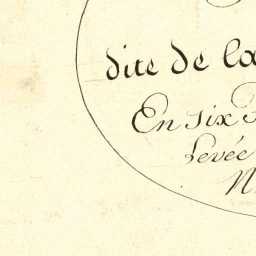 dite de la
En six
Levée